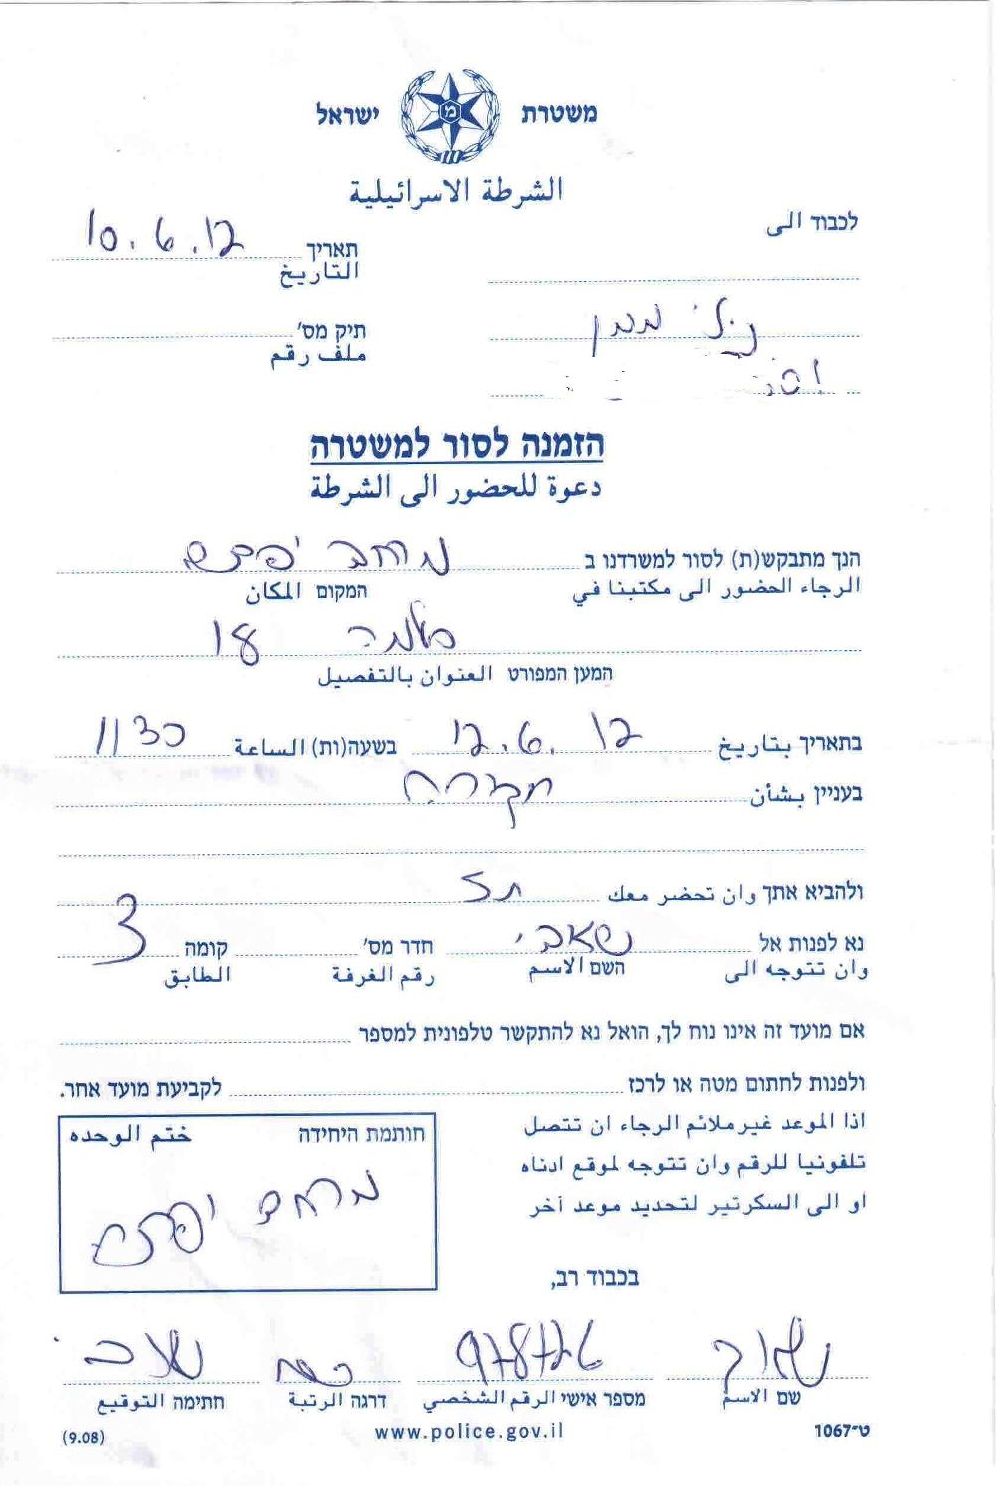 משטרת ישראל
الشرطة الاسرائيلية
לכבוד الى
תאריך 10.6.12
التاريخ
תיק מס'
ملف رقم
גילי ממן
הזמנה לסור למשטרה
دعوة للحضور الى الشرطة
הנך מתבקש(ת) לסור למשרדנו ב מרחב יפתח
الرجاء الحضور الى مكتبنا في המקום المكان
סלמה 18
המען המפורט العنوان بالتفصيل
בתאריך بتاريخ 12.6.12 בשעה(ות) الساعة 1130
בעניין بشأن חקירה
ולהביא אתך وان تحضر معك תז
נא לפנות אל חדר מס' קומה 3
وان تتوجه الى השם الاسم رقم الغرفة الطابق
אם מועד זה אינו נוח לך, הואל נא להתקשר טלפונית למספר
ולפנות לחתום מטה או לרכז לקביעת מועד אחר.
اذا الموعد غير ملائم الرجاء ان تتصل
تلفونيا للرقم وان تتوجه لموقع ادناه
او الى السكرتير لتحديد موعد أخر
חותמת היחידה ختم الوحده
מרחב יפתח
בכבוד רב,
שם الاسم מספר אישי الرقم الشخصي דרגה الرتبة חתימה التوقيع
ט-1067 www.police.gov.il (9.08)